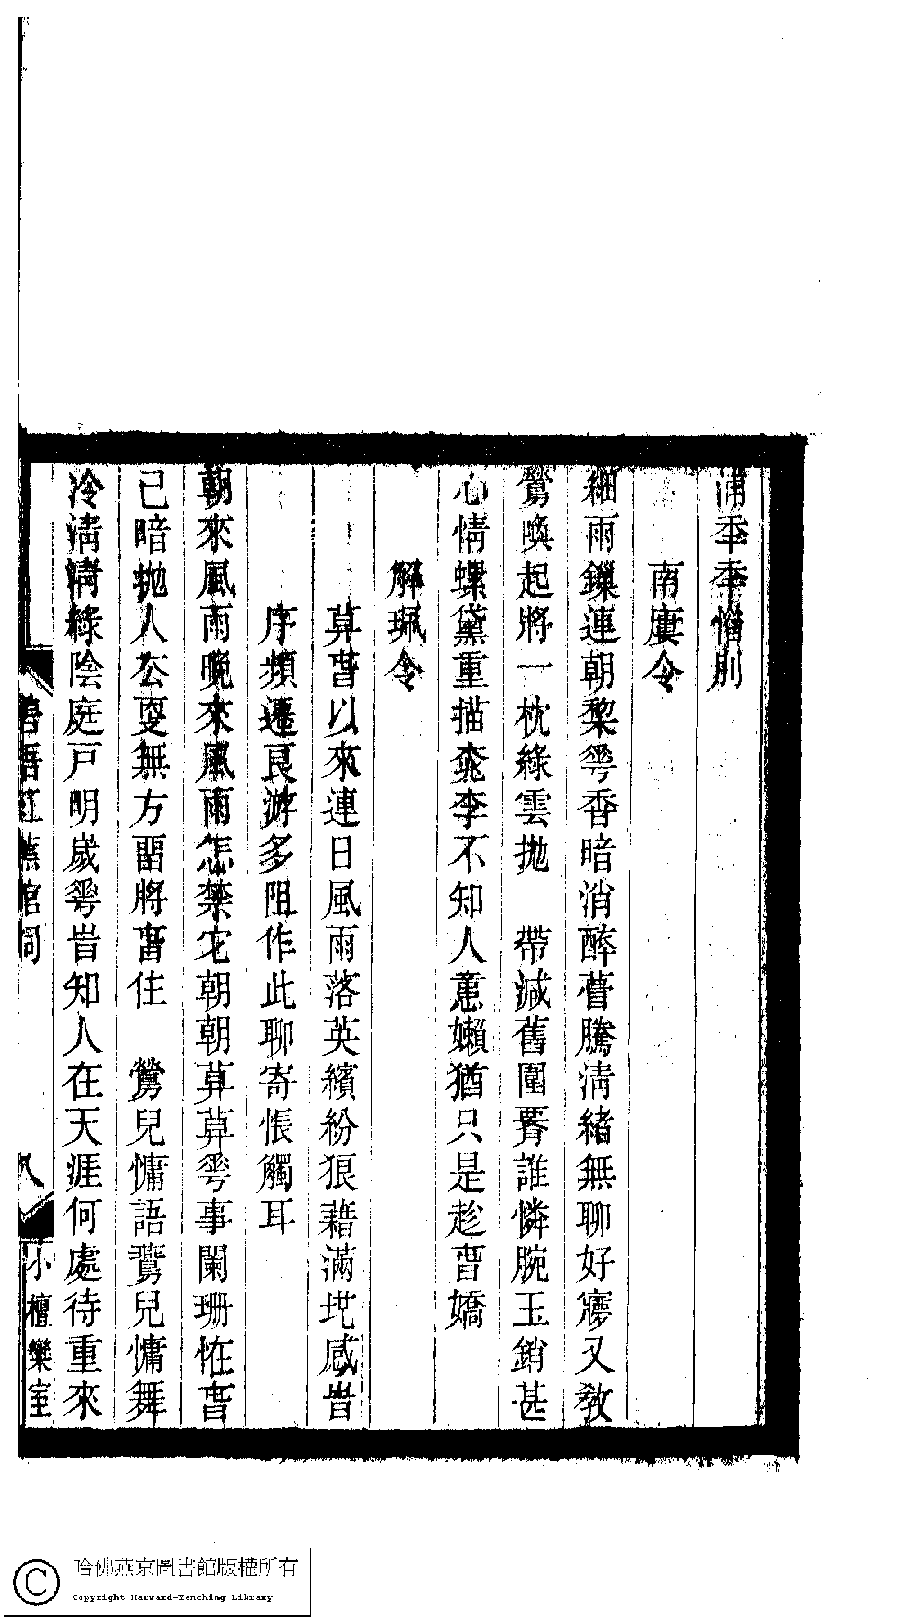 浦秊秊惜別
南廔令
細雨鏁連朝棃蕚香暗消醉瞢騰淸緒無聊好㝱又敎
鶯喚起將一枕綠雲拋　帶減舊圍𦝫誰憐腕玉銷甚
心情螺黛重描桃李不知人意嬾猶只是趁曺嬌
解珮令
萛曺以來連日風雨落英繽紛狼藉滿地感旹
序頻遷良游多阻作此聊寄悵觸耳
朝來風雨晚來風雨怎禁它朝朝萛萛蕚事闌珊恠曺
已暗拋人去叓無方畱將曺住　鶯兒慵語鶯兒慵舞
冷淸淸綠陰庭戸明歲蕚旹知人在天涯何處待重來
碧梧紅蕉館詞
八
小檀欒室
哈佛燕京圖書館版權所有
Copyright Harvard-Yenching Library